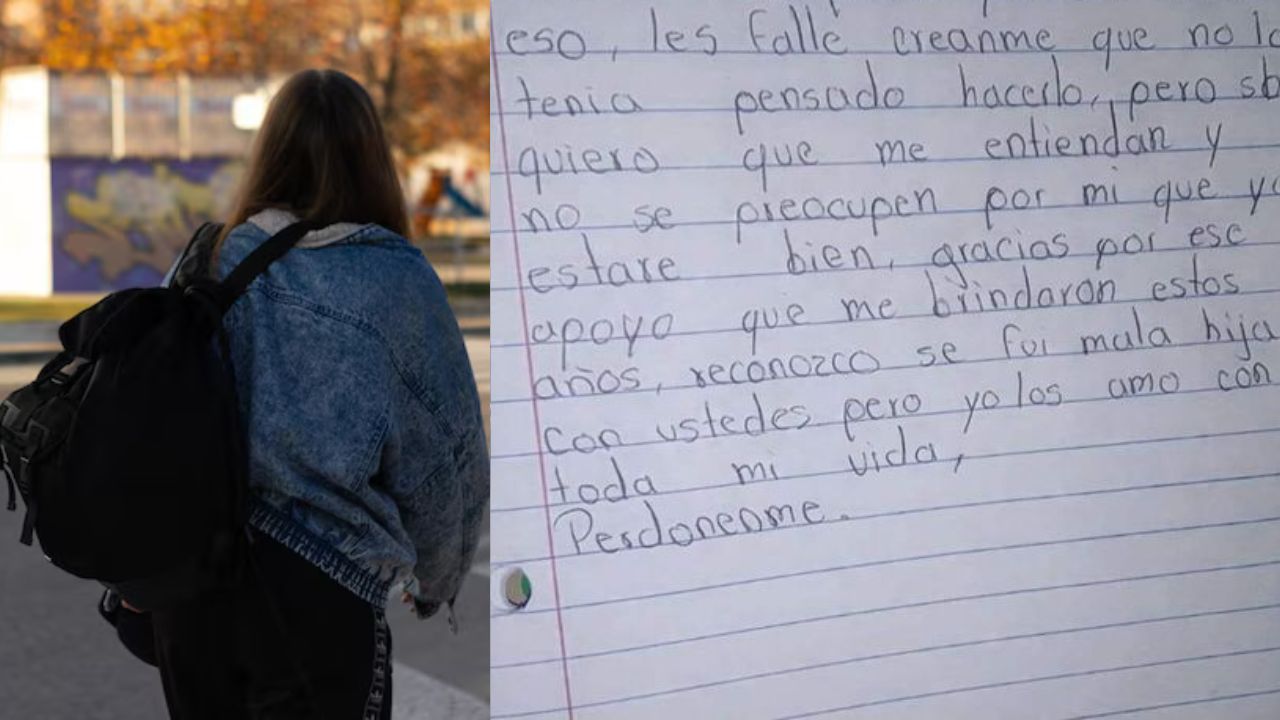 eso, les fallé creanme que no lo
tenia pensado hacerlo, pero sb
quiero que me entiendan y
no se preocupen por mi que ya
estare bien, gracias por ese
apoyo que me brindaron estos
años, reconozco se fui mala hija
con ustedes pero yo los amo con
toda mi vida,
Perdonenme.